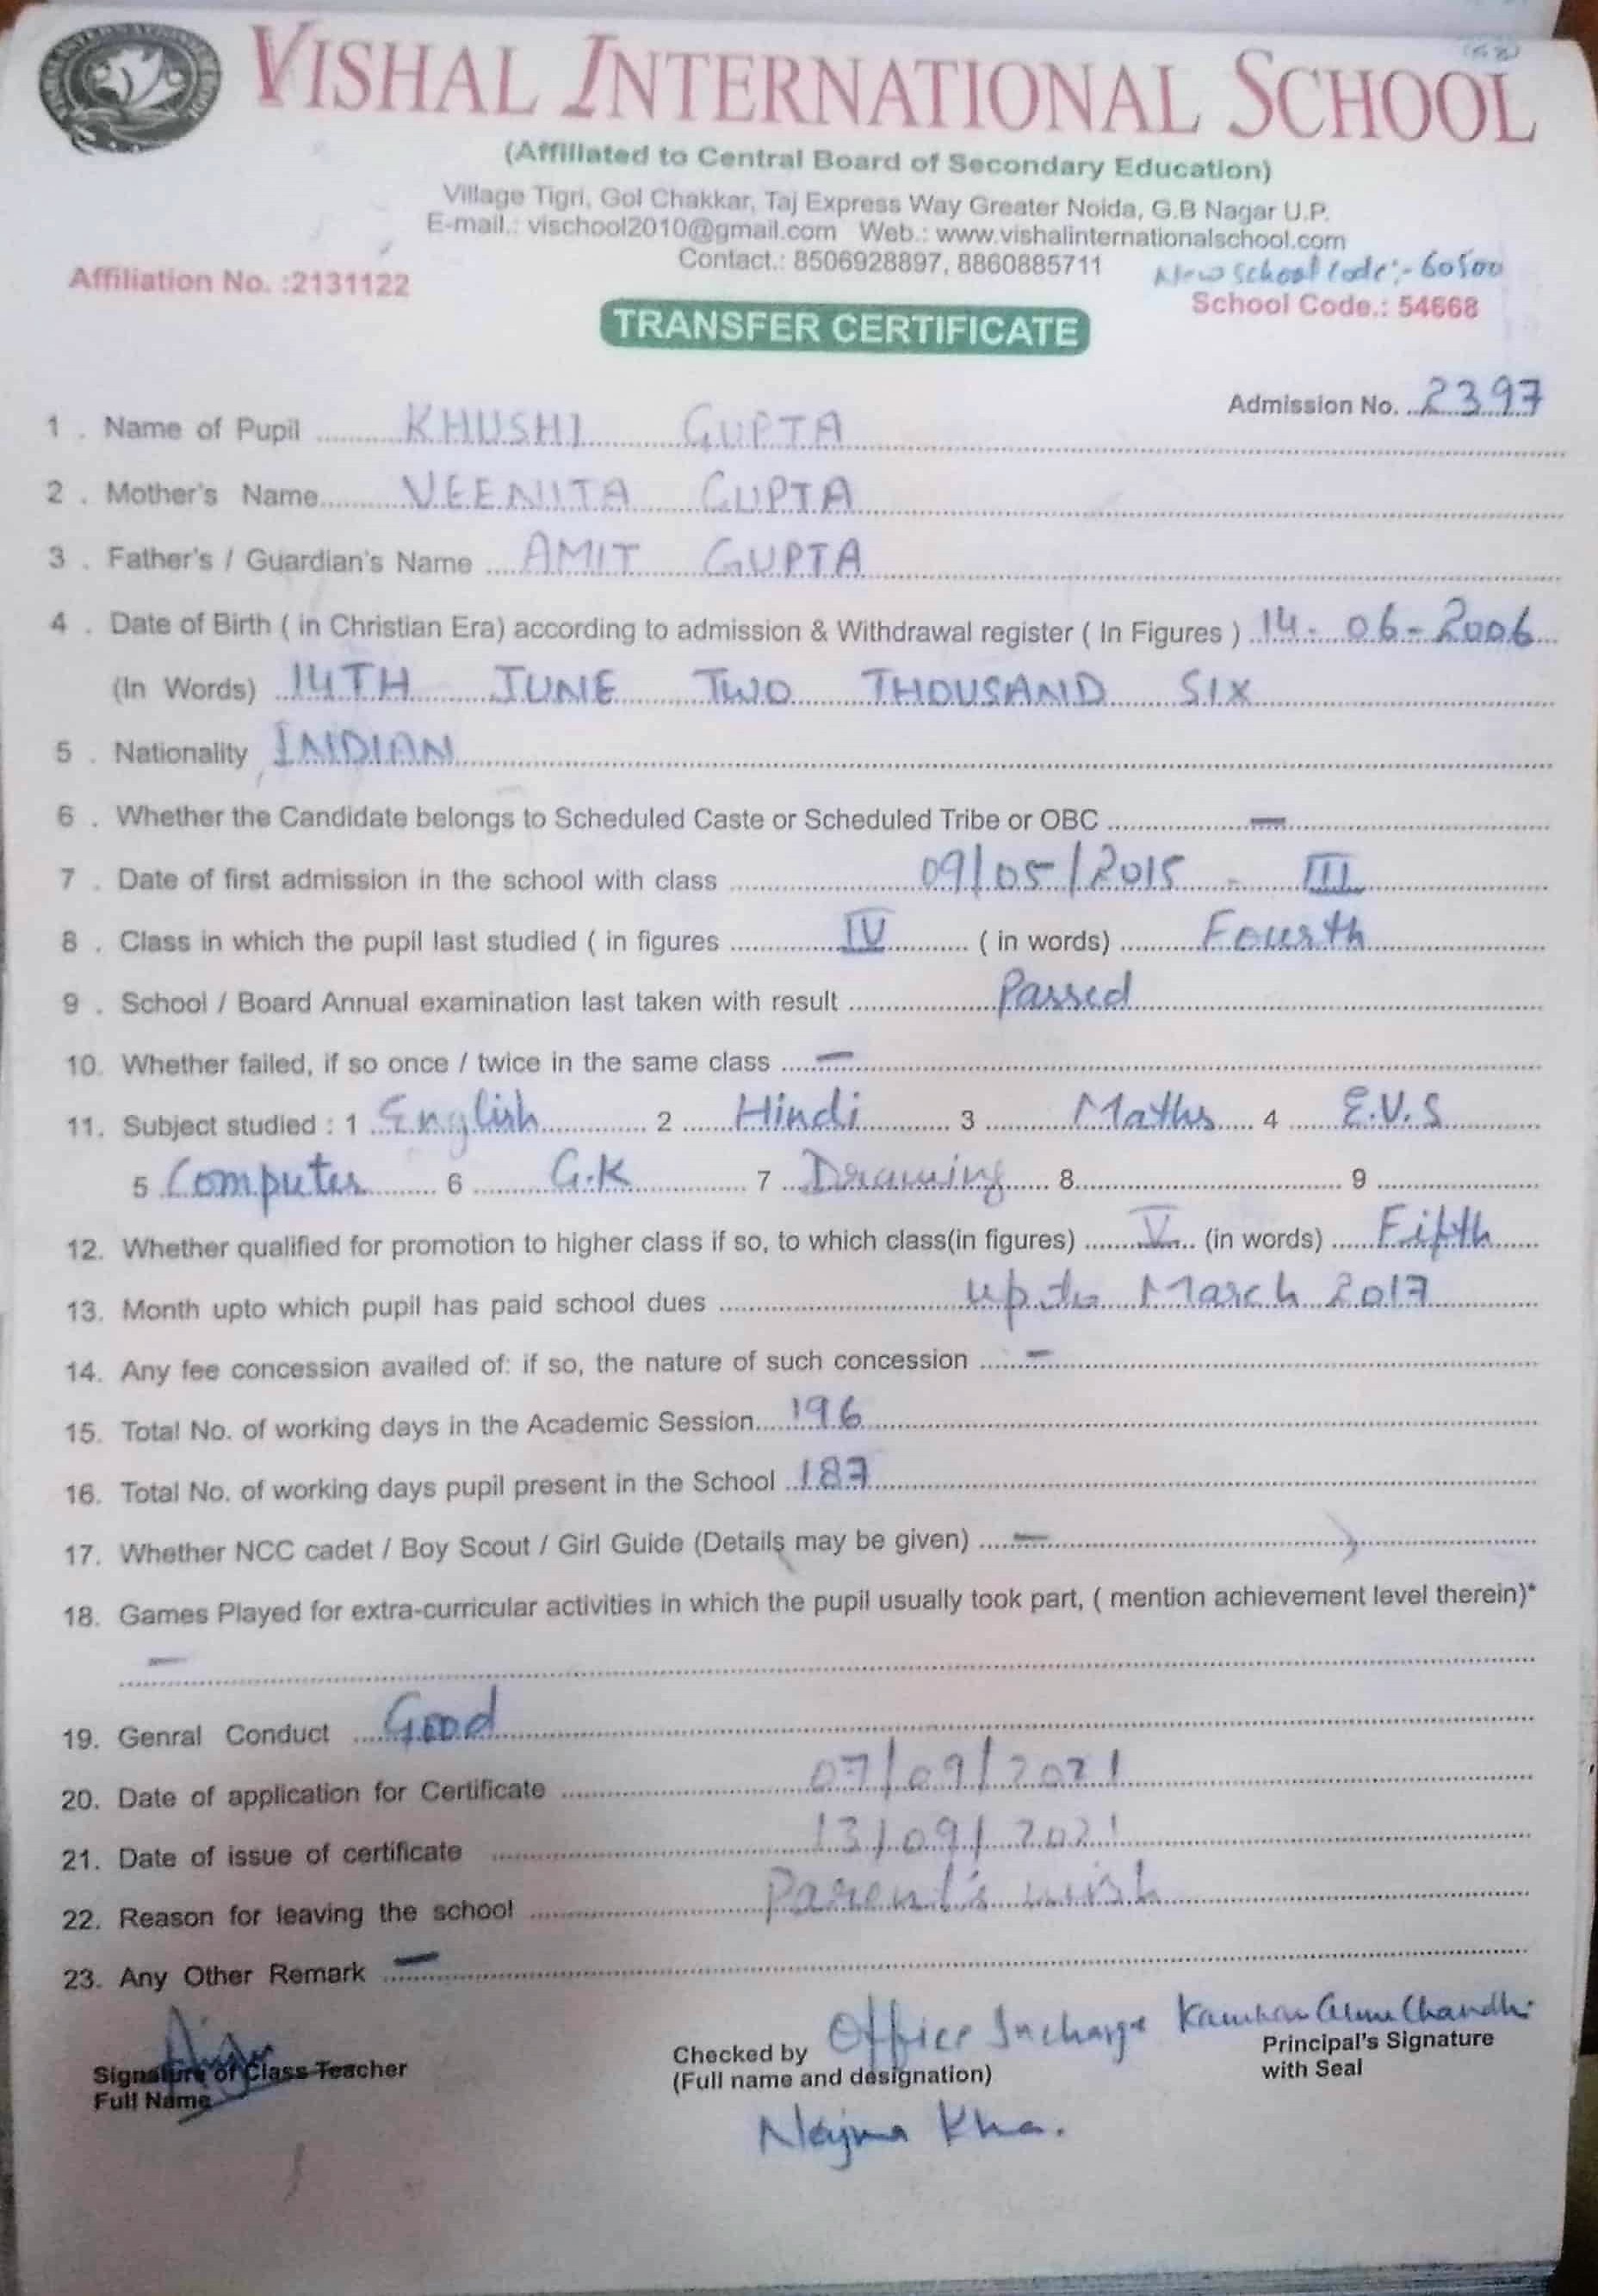 VISHAL INTERNATIONAL SCHOOL
(Affiliated to Central Board of Secondary Education)
Village Tigri, Gol Chakkar, Taj Express Way Greater Noida, G.B Nagar U.P.
E-mail.: vischool2010@gmail.com Web.: www.vishalinternationalschool.com
Contact.: 8506928897, 8860885711
New School Code:- 60500
Affiliation No. :2131122
School Code.: 54668
TRANSFER CERTIFICATE
Admission No. 2397
1 . Name of Pupil KHUSHI GUPTA
2 . Mother's Name VEENITA GUPTA
3 . Father's / Guardian's Name AMIT GUPTA
4 . Date of Birth ( in Christian Era) according to admission & Withdrawal register ( In Figures ) 14-06-2006
(In Words) 14TH JUNE TWO THOUSAND SIX
5 . Nationality INDIAN
6 . Whether the Candidate belongs to Scheduled Caste or Scheduled Tribe or OBC —
7 . Date of first admission in the school with class 09/05/2015 - III
8 . Class in which the pupil last studied ( in figures IV ( in words) Fourth
9 . School / Board Annual examination last taken with result Passed
10. Whether failed, if so once / twice in the same class —
11. Subject studied : 1 English 2 Hindi 3 Maths 4 E.V.S
5 Computer 6 G.K 7 Drawing 8 9
12. Whether qualified for promotion to higher class if so, to which class(in figures) V (in words) Fifth
13. Month upto which pupil has paid school dues up to March 2017
14. Any fee concession availed of: if so, the nature of such concession —
15. Total No. of working days in the Academic Session 196
16. Total No. of working days pupil present in the School 187
17. Whether NCC cadet / Boy Scout / Girl Guide (Details may be given) —
18. Games Played for extra-curricular activities in which the pupil usually took part, ( mention achievement level therein)*
—
19. Genral Conduct Good
20. Date of application for Certificate 07/09/2021
21. Date of issue of certificate 13/09/2021
22. Reason for leaving the school Parent's wish
23. Any Other Remark —
Office Incharge
Signature of Class Teacher
Full Name
Checked by
(Full name and designation)
Principal's Signature
with Seal
Najma Kha.